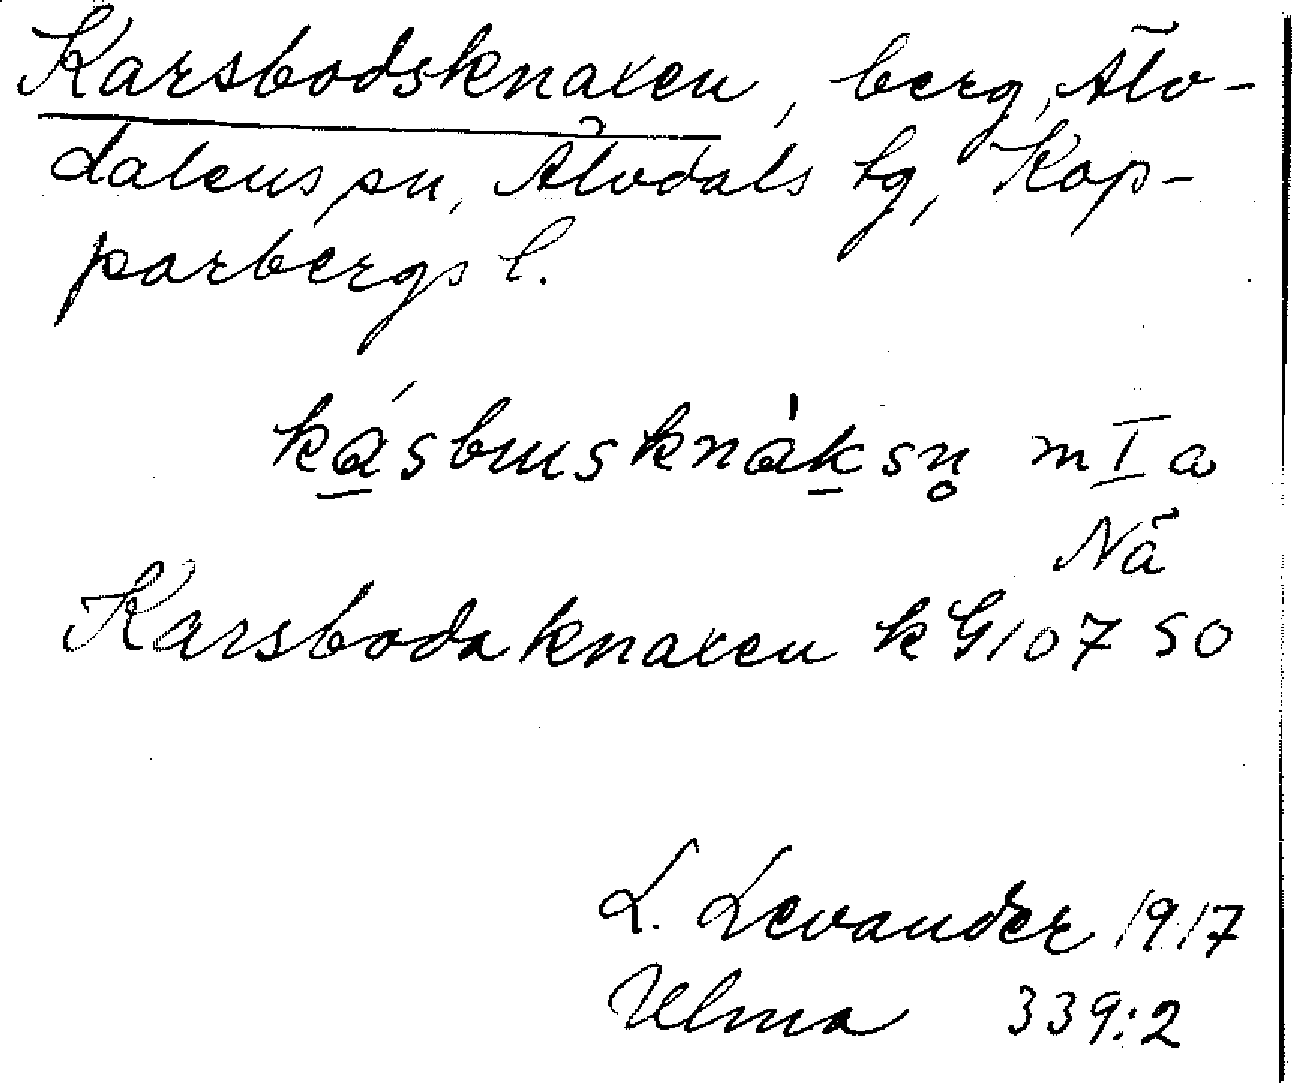 Karsbodsknaxen, berg, Älv-
dalens sn, Älvdals tg, Kop-
parbergs l.
kásbusknàksn̥ m I a
Nä
Karsbodaknaxen kG 10750
L. Levander 1917
Ulma 339:2